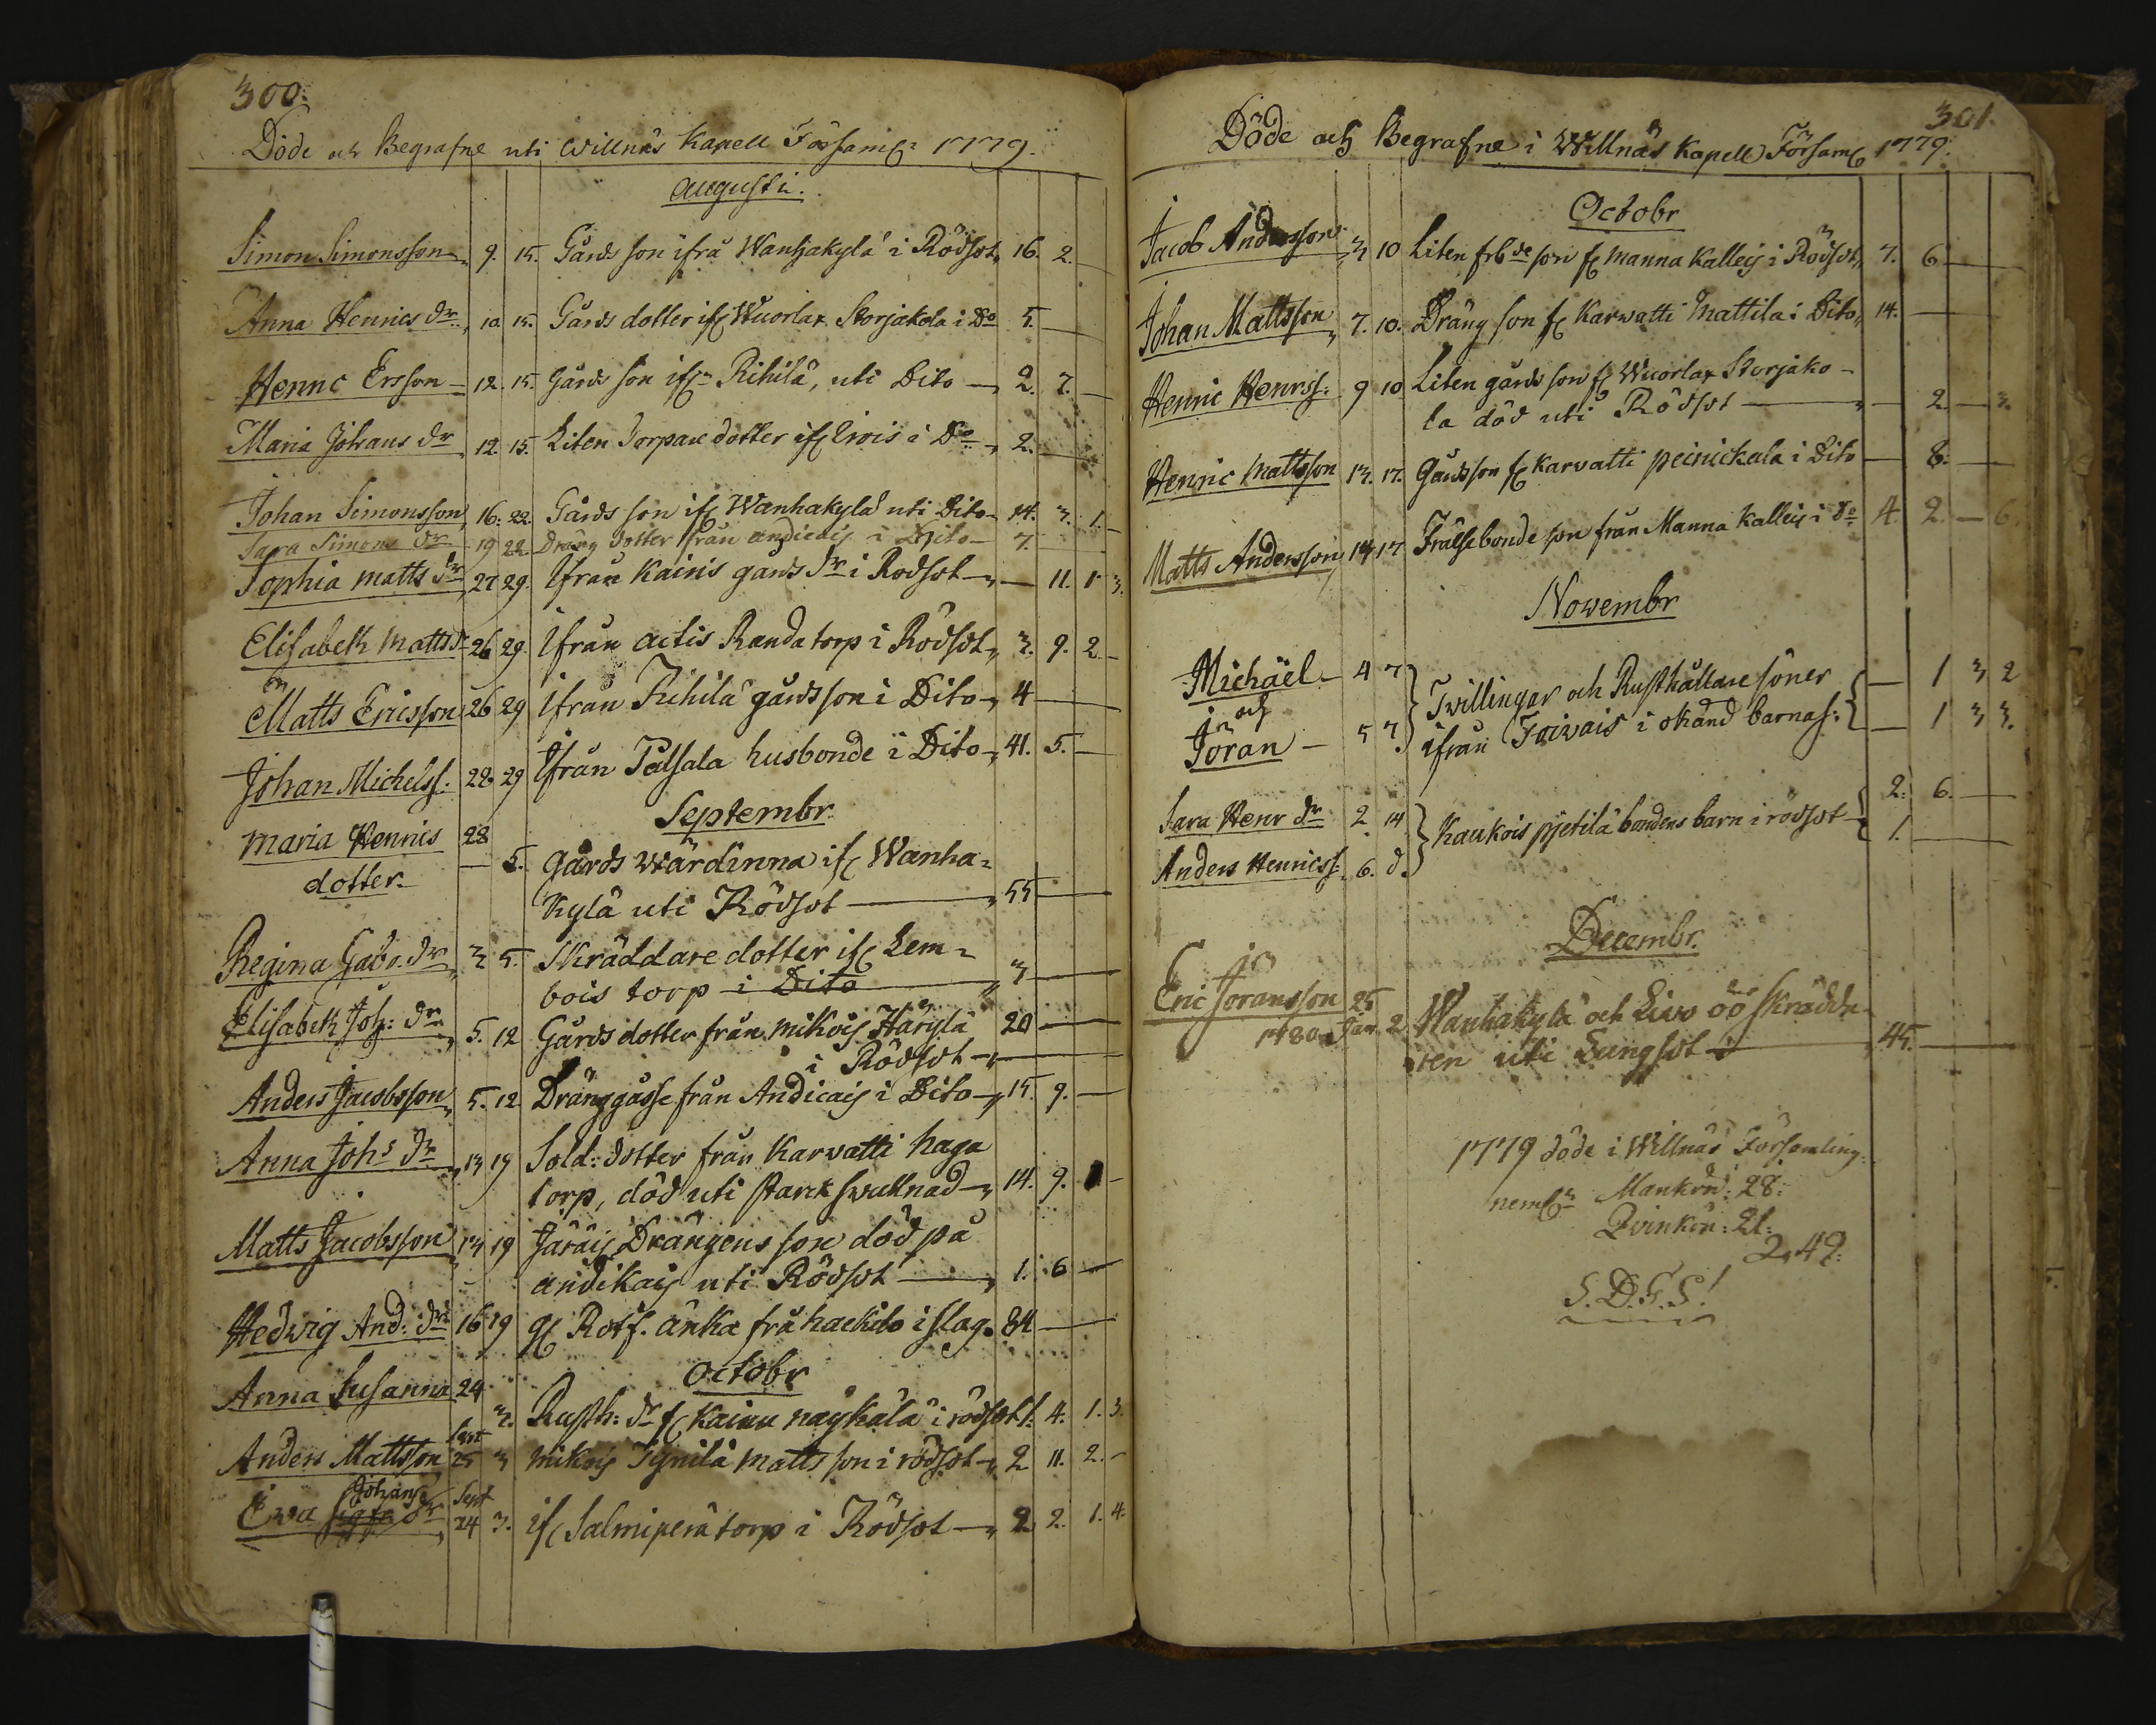 300.
Döde och Begrafne uti Willnäs Kapell Församl: 1779.
Augusti.
Simon Simonsson 9. 15. Gårds son ifrå Wanhakylä i Rödsot 16. 2. —
Anna Henrics dr. 10 15. Gårds dotter if Wuorlax Storjakola i Do 5. —
Henric Ersson 12. 15. Gårds son ifn Rihilä, uti Dito — 2. 7. —
Maria Johans dr 12. 15. Liten Torpare dotter if Erois i Do 2. —
Johan Simonsson 16. 22. Gårds son if Wanhakylä uti Dito 14. 3. 1. —
Sara Simons dr 19 22 Dräng dotter från andicais i Dito — 7. —
Sophia Matts dr 27 29. Ifrån Kairis gårds dr i Rödsot — 11. 1 3.
Elisabeth Matts d 26 29. Ifrån actis Randa torp i Rödsot 3. 9. 2 —
Matts Ericsson 26 29 Ifrån Rihilä gårds son i Dito 4 —
Johan Michelss: 28 29 Ifrån Palsala husbonde i Dito 41. 5. —
Septembr.
Maria Henrics 28
dotter — 5. Gårds wärdinna if Wanha=
kylä uti Rödsot — 55 —
Regina Gabr. dr 3 5. Skräddare dotter if Lem=
bois torp i Dito 3 —
Elisabeth Joh: dr 5. 12 Gårds dotter från Mikois Härylä 20 —
i Rödsot —
Anders Jacobsson 5. 12 Dränggåsse från Andicais i Dito 15. 9. —
Anna Johs dr 13 19 Sold: dotter från Karvatti haga
torp, död uti starck swullnad 14. 9. —
Matts Jacobsson 14 19 Järäis Drängens son död på
andikais uti Rödsot — 1. 6 —
Hedwig And: dr 16 19 Rotf. änka frå haekilo i slag. 84 —
Octobr
Anna Susanna 24
3. Rusth: dr f Kairu näykälä i rödsot 1. 4. 1. 3.
Anders Mattsson 25 3 Mikois Tynilä Matts son i rödsot 2 11. 2. —
Johans Sept
Ewa dr 24 3. if Salmiperä torp i Rödsot — 2 2. 1. 4.
301.
Döde och Begrafne i Willnäs Kapell Församl 1779.
Octobr
Jacob Andersson 3 10 Liten frb de son f Manna Kalleis i Rödsot 7. 6 —
Johan Mattsson 7. 10. Dräng son f Karwatti Mattila i Dito 14. —
Henric Henrss: 9 10 Liten gårds son f Wuorlax Storjako-
la död uti Rödsot — 2 — 3.
Henric Mattsson 13. 17. Gårdsson f Karvatti peinickala i Dito — 8. —
Matts Andersson 14 17 Frälsebonde son från Manna Kalleis i Do 4. 2. — 6.
Novembr
Michäel 4 7 Twillingar och Rusthållare söner — 1 3 2
och
Jöran — 5 7. ifrån Taivais i okänd barnas: — 1 3 3.
Sara Henr dr 2 14 Kaukois pjetilä bondens barn i rödsot 2. 6. —
Anders Henricss: 6. d. 1. —
Decembr.
Eric Jöransson 25 Wanhakylä och Liwo öö skrädda-
1780 Jan 2 ren uti Lungsot — 45. —
1779 döde i Willnäs Församling.
neml: Mankön: 28:
Qvinkön: 21:
49:
S.D.G.S!